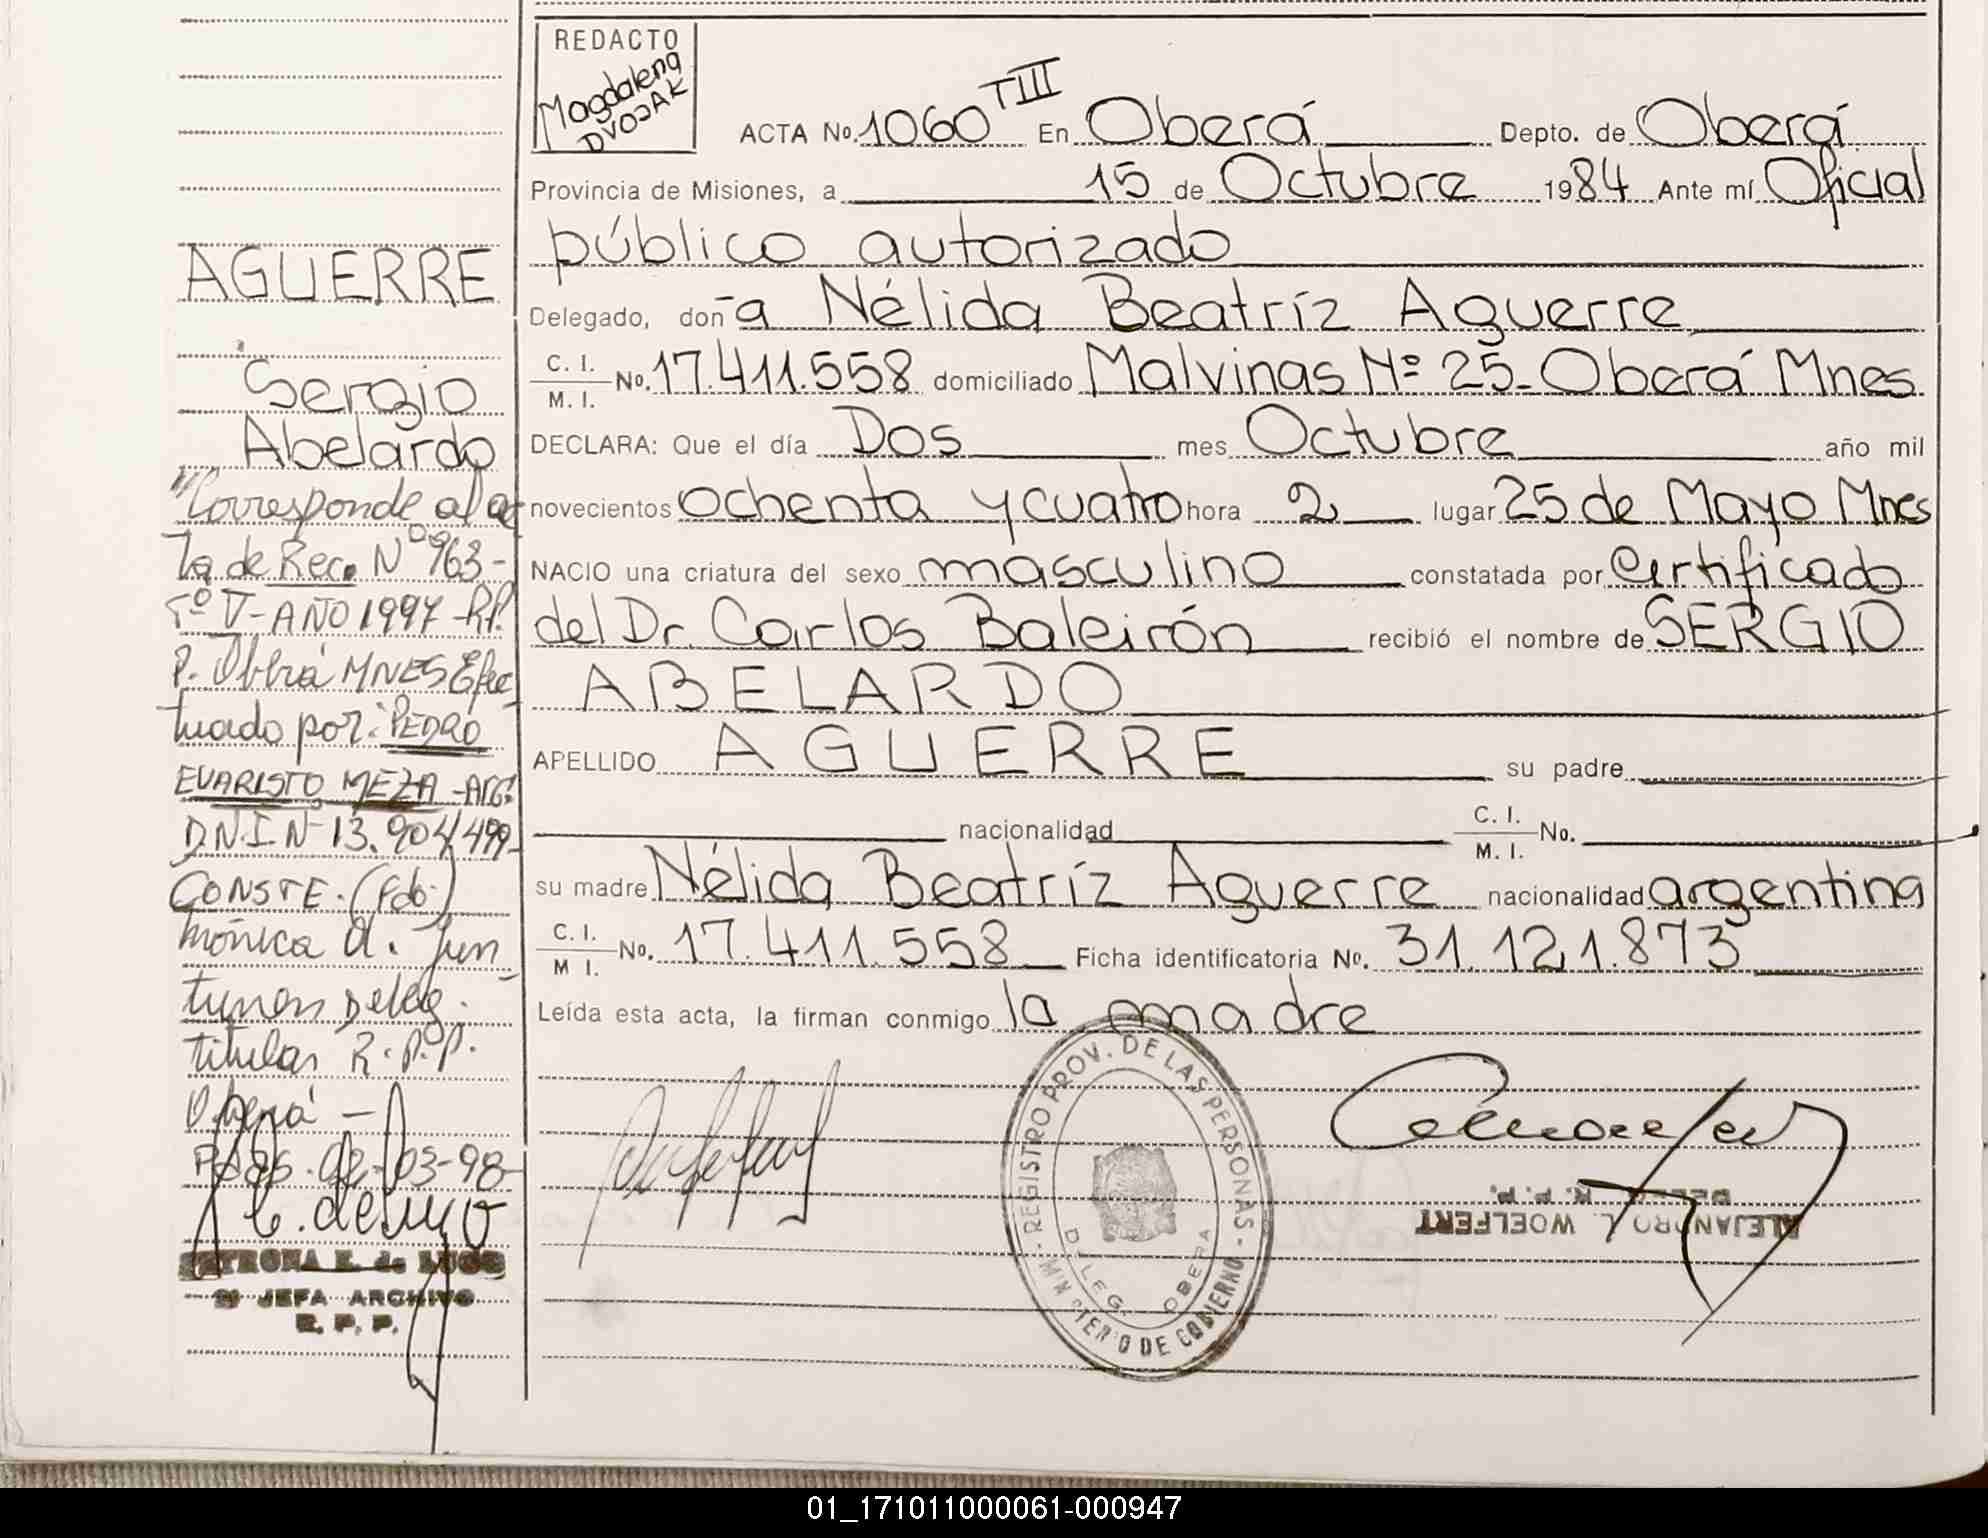 REDACTO
Magdalena
DVOJAK
ACTA No. 1060 TIII En Oberá Depto. de Oberá
Provincia de Misiones, a 15 de Octubre 1984 Ante mí Oficial
público autorizado
Delegado, don-a Nélida Beatríz Aguerre
C. I.
M. I. No. 17.411.558 domiciliado Malvinas Nº 25-Oberá Mnes
DECLARA: Que el día Dos mes Octubre año mil
novecientos ochenta y cuatro hora 2 lugar 25 de Mayo Mnes
NACIO una criatura del sexo masculino constatada por Certificado
del Dr. Carlos Baleirón recibió el nombre de SERGIO
ABELARDO
APELLIDO AGUERRE su padre
nacionalidad C. I.
M. I. No.
su madre Nélida Beatríz Aguerre nacionalidad argentina
C. I.
M I. No. 17.411.558 Ficha identificatoria No. 31.121.873
Leída esta acta, la firman conmigo la madre
REGISTRO PROV. DE LAS PERSONAS - MINISTERIO DE GOBIERNO
DELEG. OBERA
ALEJANDRO L. WOELFERT
DELEG. R. P. P.
AGUERRE
Sergio
Abelardo
"Corresponde al ac
ta de Rec. Nº 963-
Tº V-AÑO 1997-R.P.
P. Oberá MNES Efec
tuado por: PEDRO
EVARISTO MEZA -ARG.
D.N.I. Nº 13.904.499-
CONSTE. (Fdo.)
Mónica A.
Deleg.
titular R.P.P.
Oberá -
Pdas. 02-03-98-
PETRONA E. de LUGO
JEFA ARCHIVO
R. P. P.
01_171011000061-000947